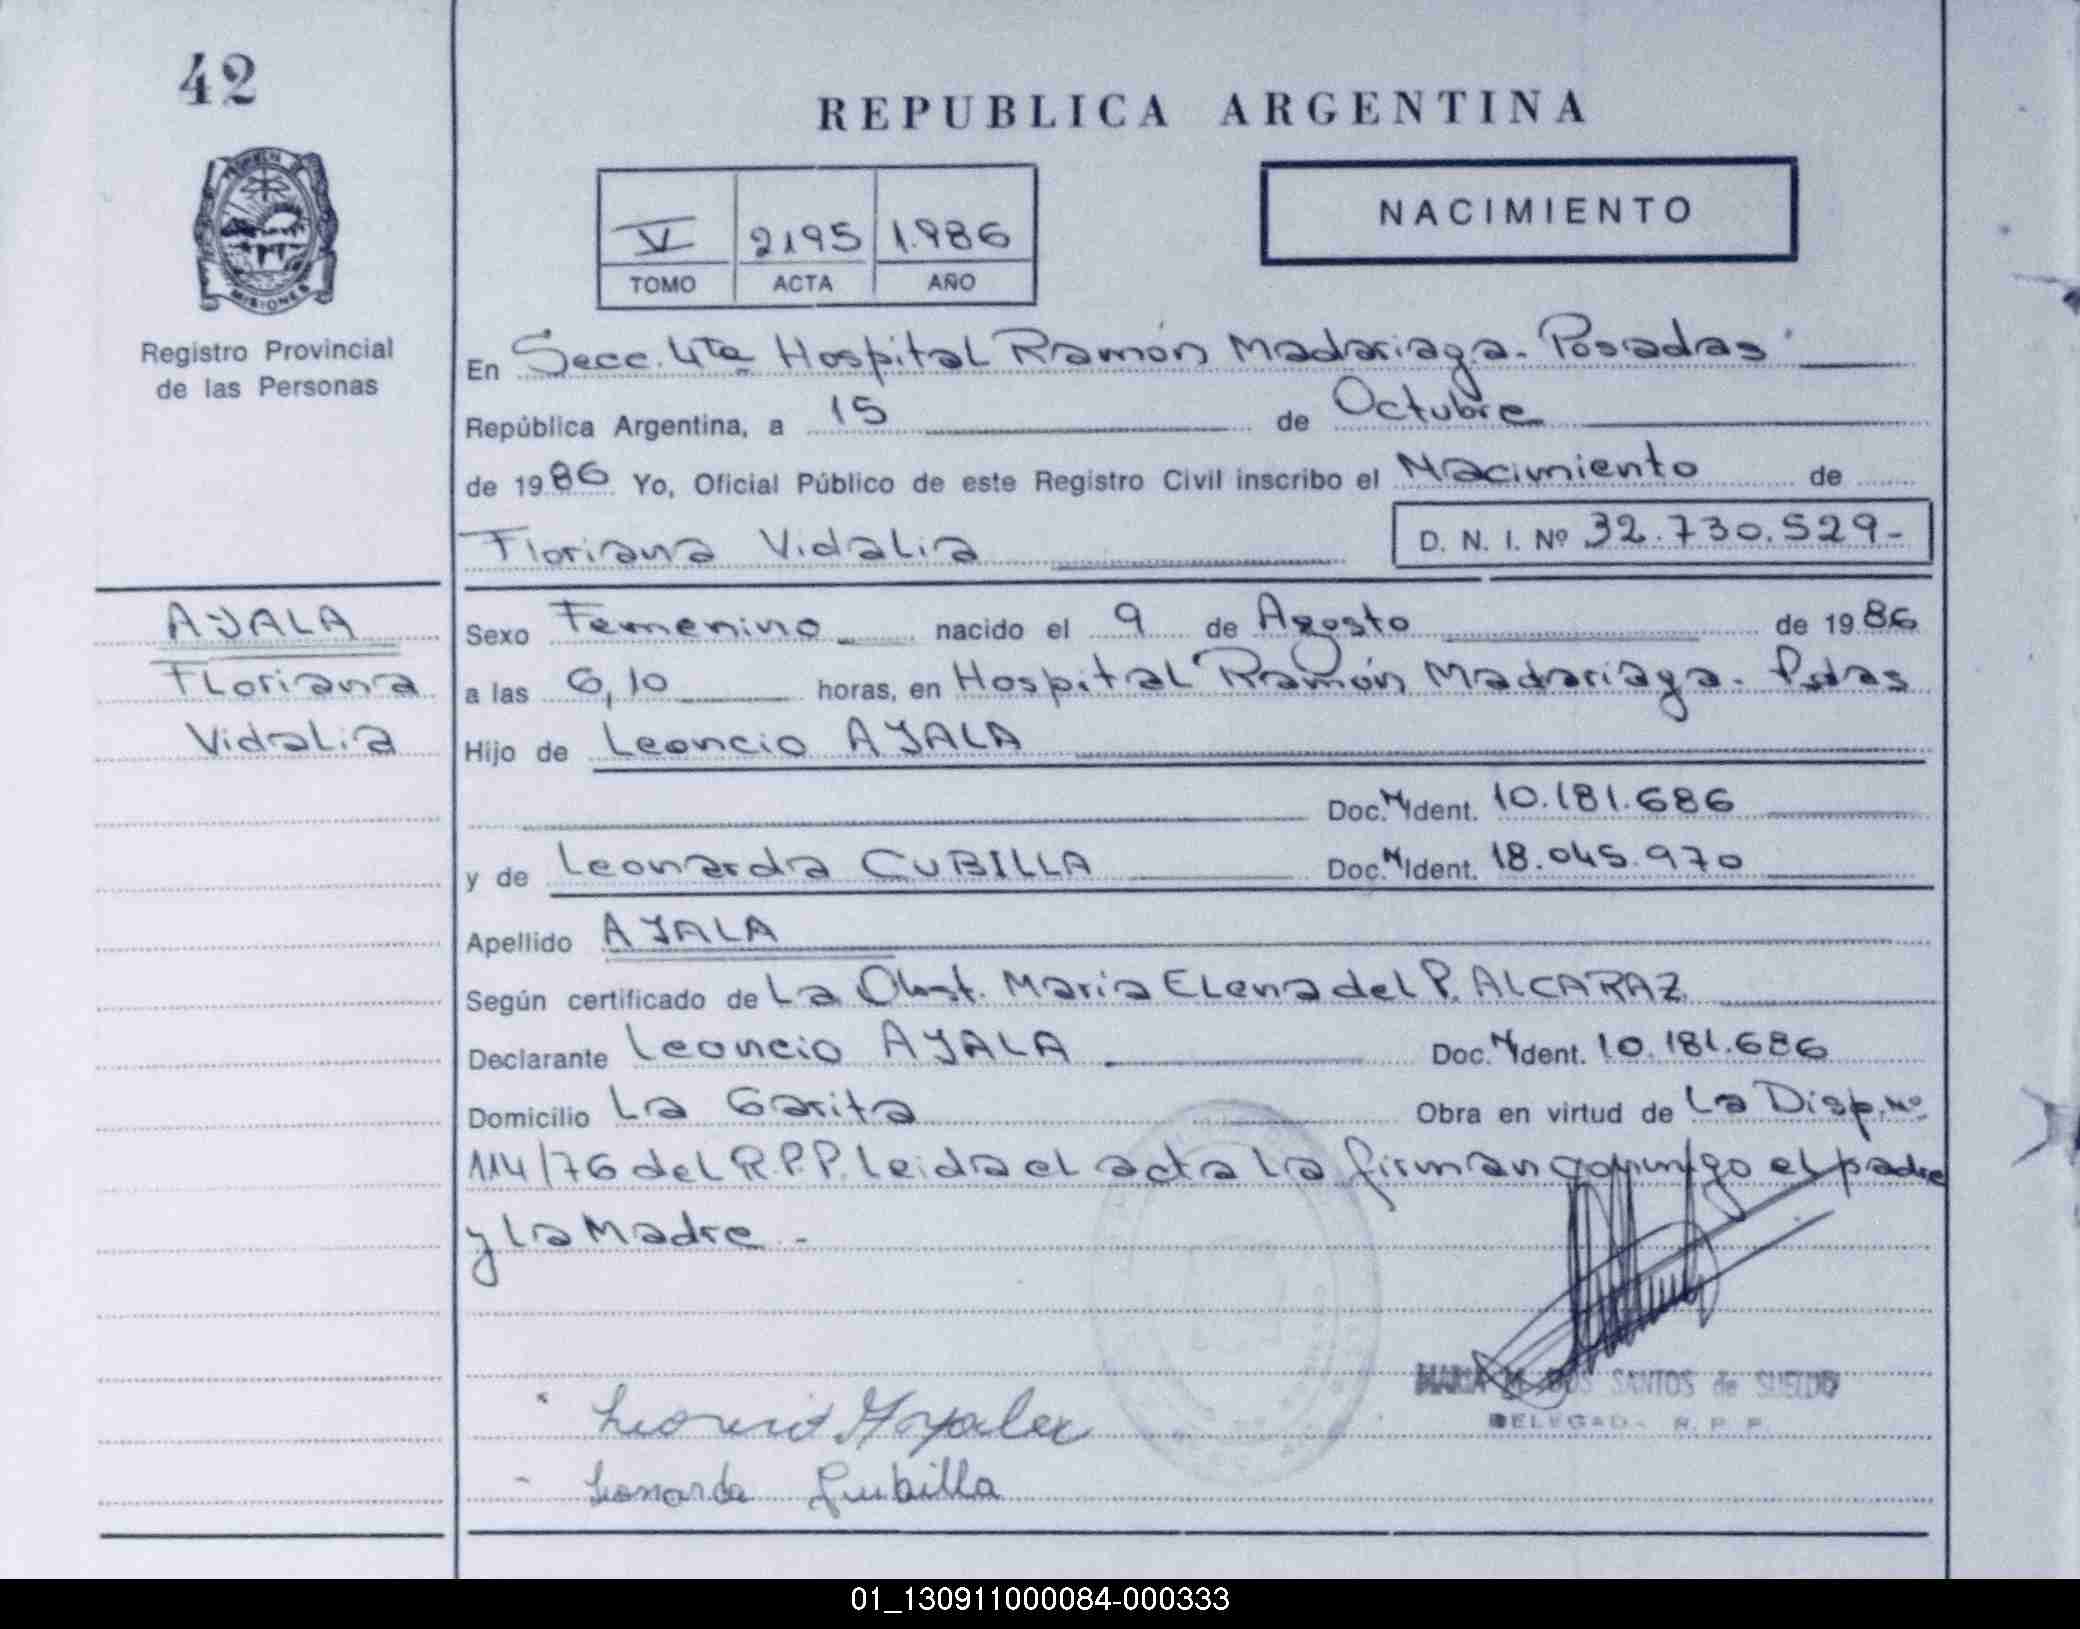 42
REPUBLICA ARGENTINA
MISIONES
Registro Provincial
de las Personas
V 2195 1.986
TOMO ACTA AÑO
NACIMIENTO
En Secc. 4ta Hospital Ramón Madariaga. Posadas
República Argentina, a 15 de Octubre
de 1986 Yo, Oficial Público de este Registro Civil inscribo el Nacimiento de
Floriana Vidalia D. N. I. Nº 32.730.529-
AYALA
Floriana
Vidalia
Sexo Femenino nacido el 9 de Agosto de 1986
a las 6,10 horas, en Hospital Ramón Madariaga. Psdas
Hijo de Leoncio AYALA
Doc. N Ident. 10.181.686
y de Leonarda CUBILLA Doc. N Ident. 18.045.970
Apellido AYALA
Según certificado de La Obst. Maria Elena del P. ALCARAZ
Declarante Leoncio AYALA Doc. N Ident. 10.181.686
Domicilio La Garita Obra en virtud de La Disp. Nº
114/76 del R.P.P. leida el acta la firman conmigo el padre
y la Madre.-
MARIA DOS SANTOS de SUELDO
DELEGADA R. P. P.
Leonarda Cubilla
01_130911000084-000333